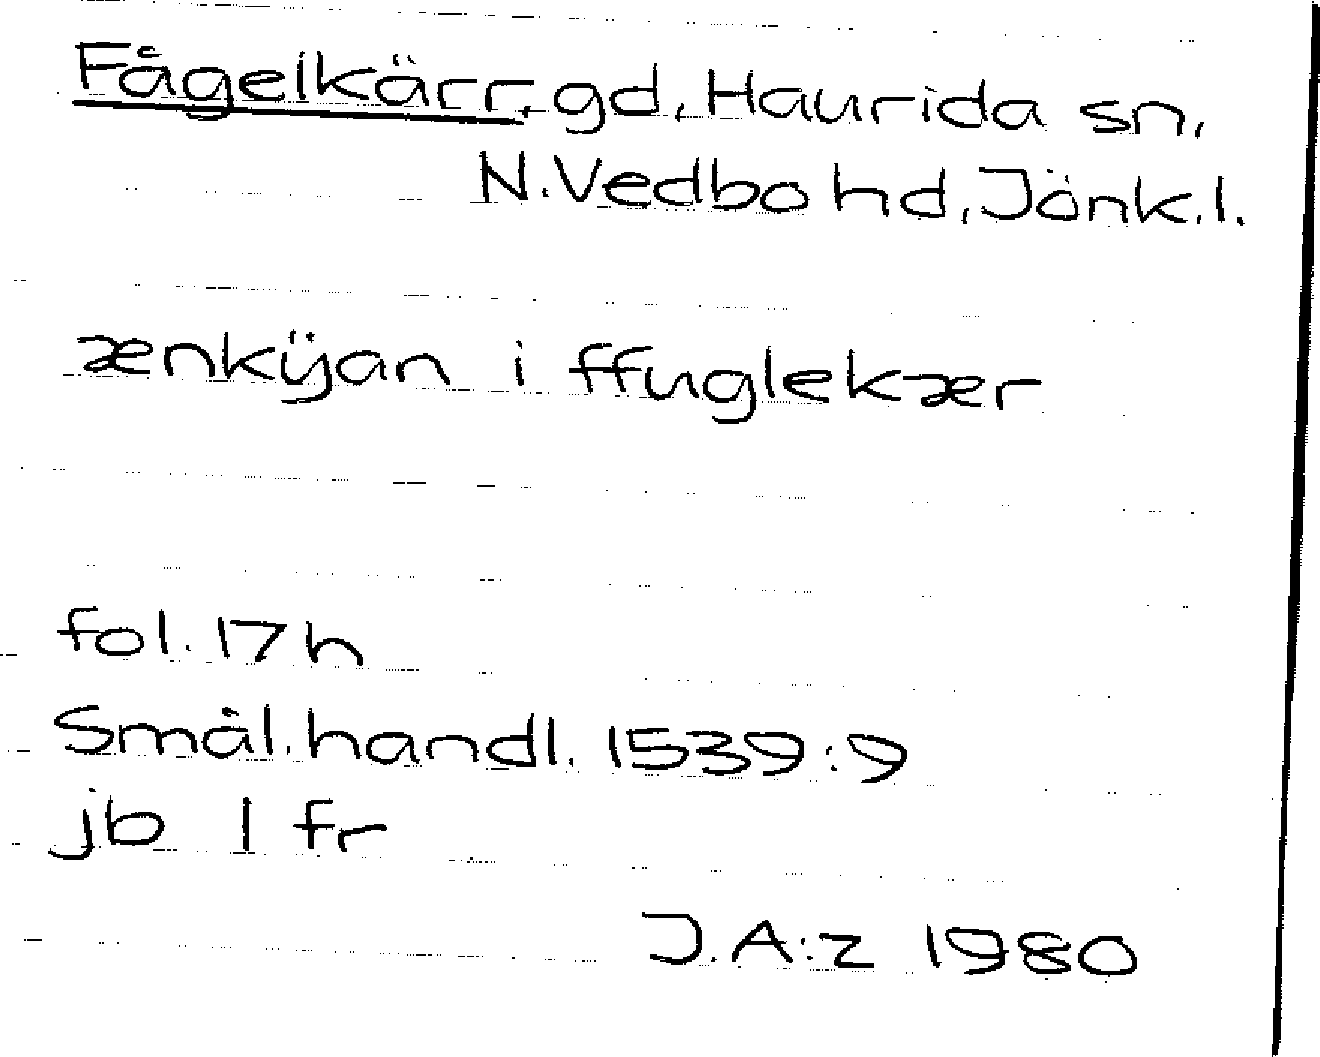 Fågelkärr, gd, Haurida sn,
N. Vedbo hd, Jönk. l.
ænkÿan i ffuglekær
fol. 17 h
Smål. handl. 1539:9
jb 1 fr
J.A:z 1980